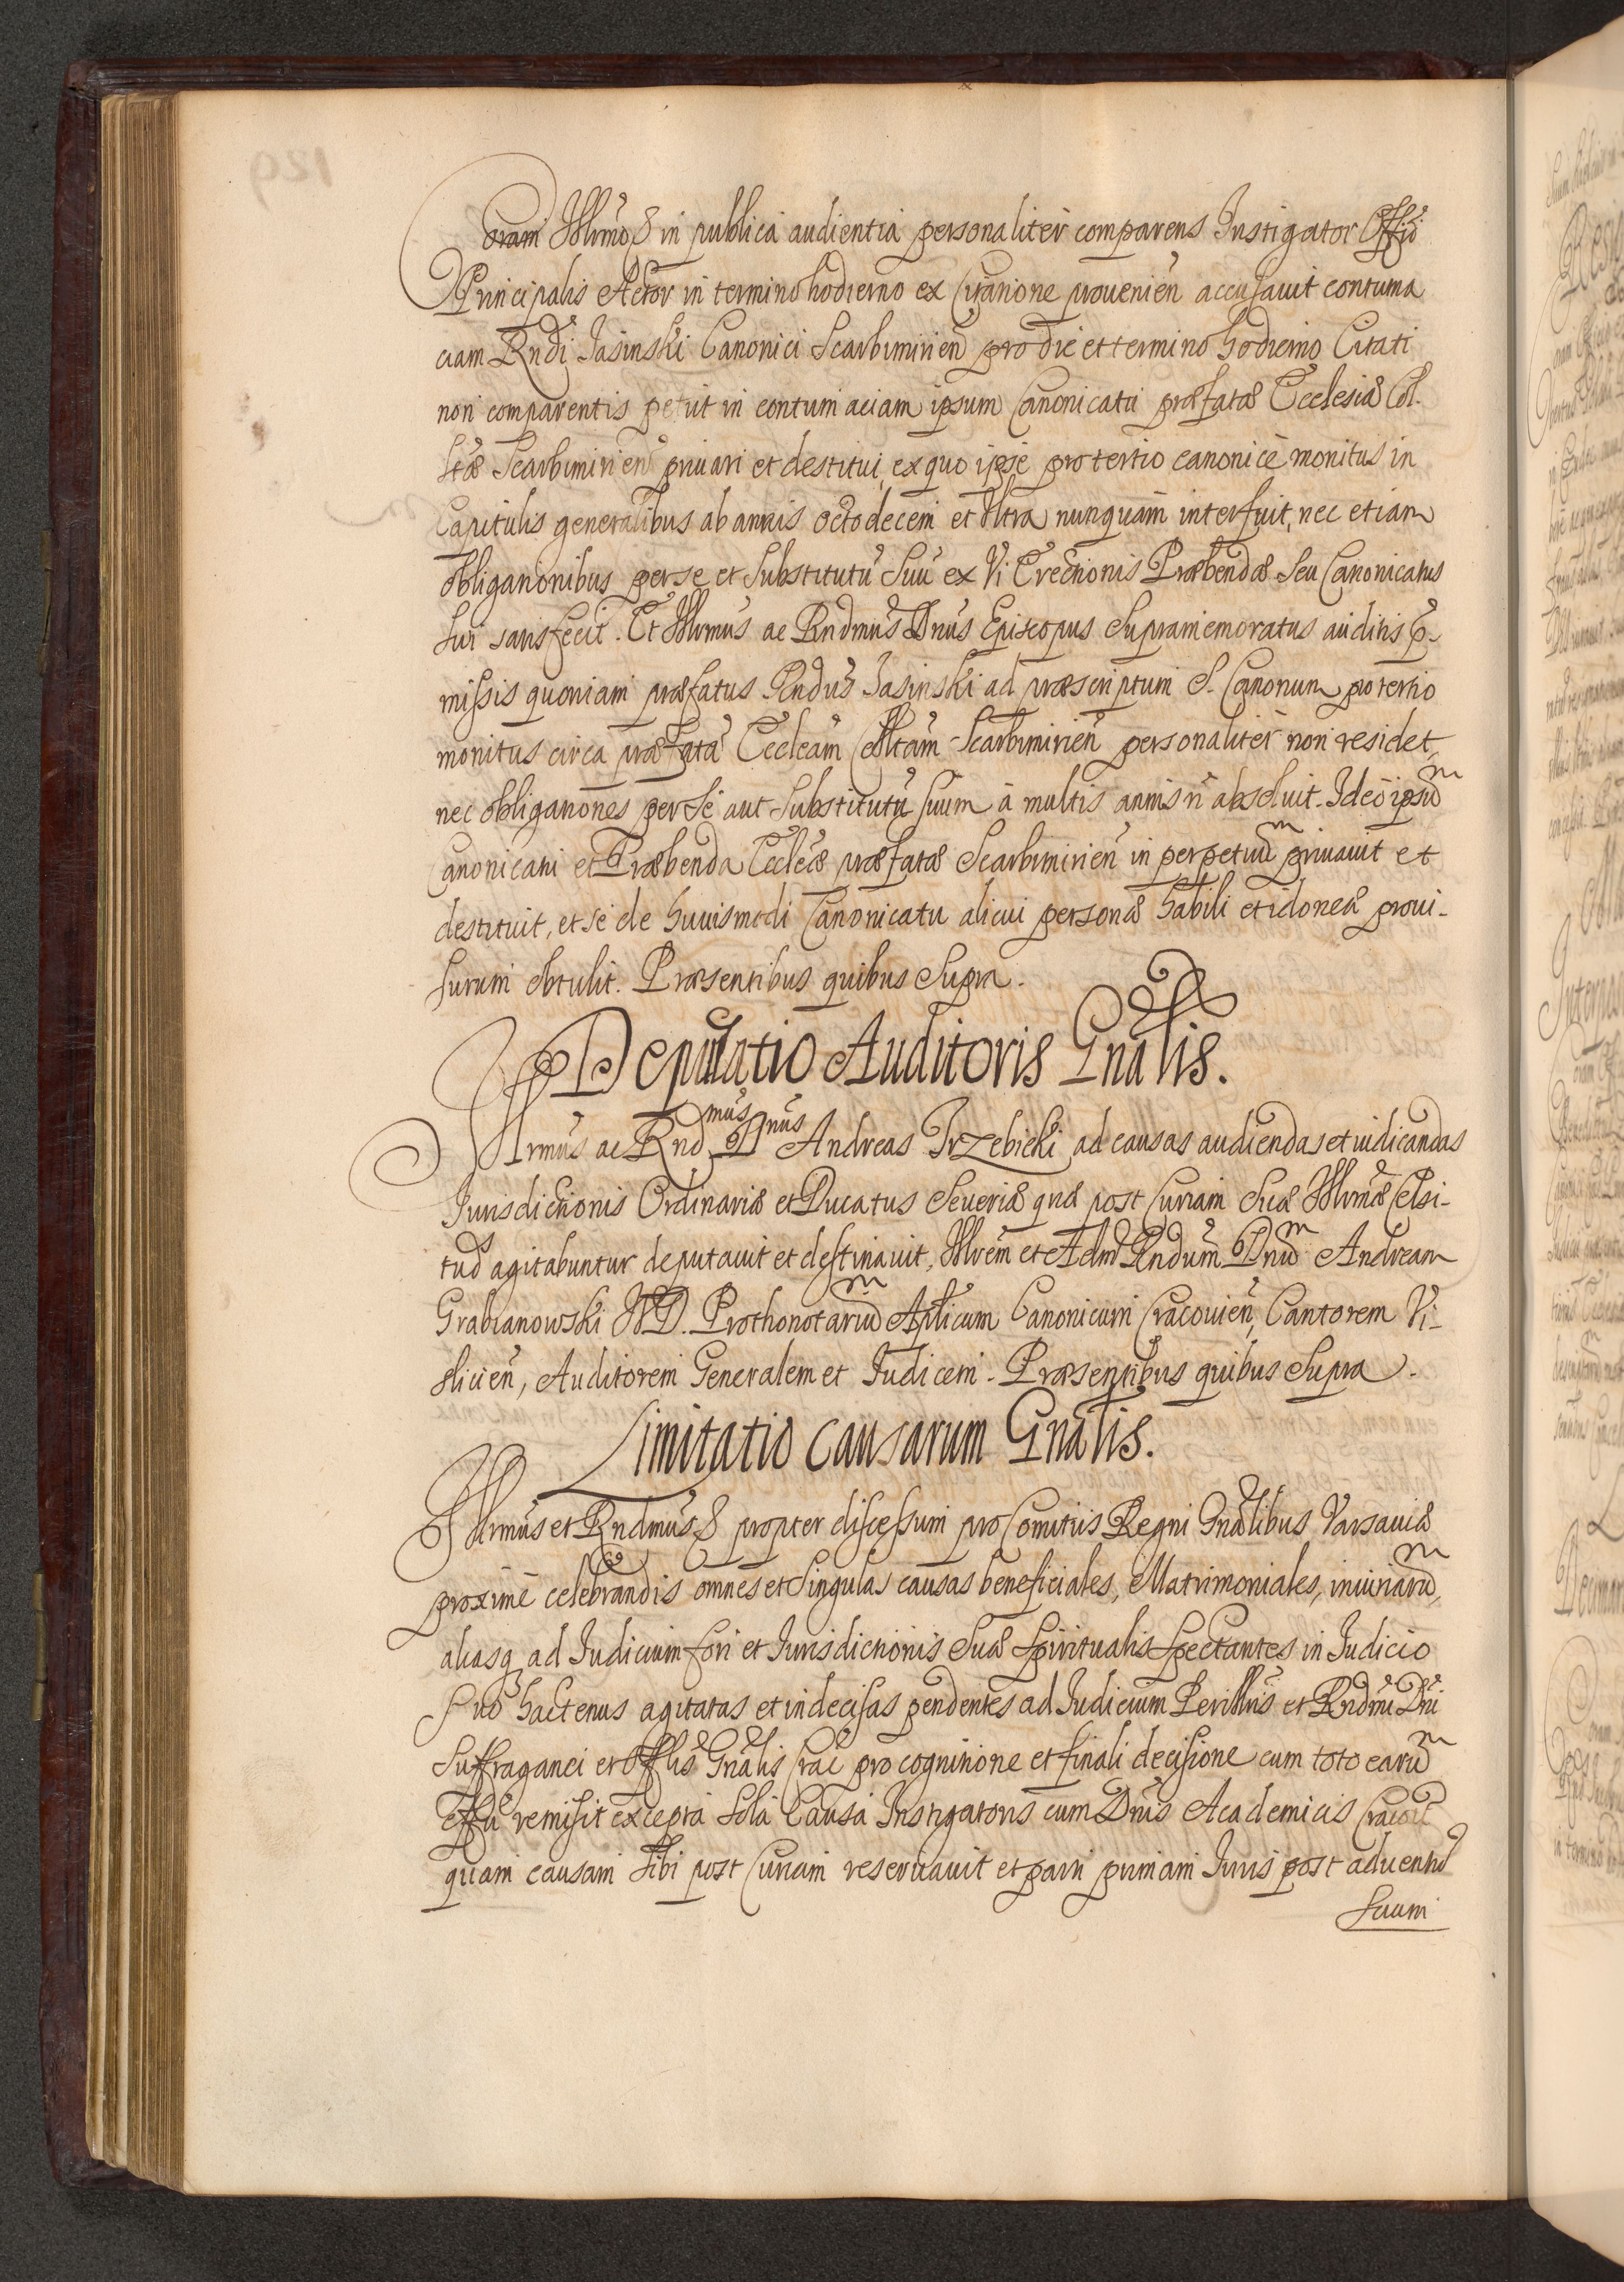 Coram Illrmo & in publica audientia personaliter comparens Instigator Offiō
Principalis Actor in termino hodierno ex Citatione provenieñ accusavit contuma
ciam Rñdi Jasinski Canonici Scarbimirieñ pro die et termino hodierno Citati
non comparentis petiit in contumaciam ipsum Canonicatu præfatæ Ecclesiæ Col.
ltæ Scarbimirieñ privari et destitui, ex quo ipse pro tertio canonicè monitus in
Capitulis generalibus ab annis octodecem et ultra nunquam interfuit, nec etiam
obligationibus per se et Substitutū Suū ex Vi Erectionis Præbendæ Seu Canonicatus
Sui satisfecit. Et Illrmus ac Rñdmus Dñus Episcopus Supramemoratus auditis p̃-
missis quoniam præfatus Rñdus Jasinski ad præscriptum S. Canonum pro tertio
monitus circa præfatā Eccleām Colltam Scarbimirieñ personaliter non residet,
nec obligationes per Se aut Substitutū Suum à multis annis ñ absoluit. Ideo ipsum
Canonicatu et Præbenda Eccleæ præfatæ Scarbimirieñ in perpetuum privavit et
destituit, et se de huiusmodi Canonicatu alicui personæ habili et idoneæ provi-
surum obtulit. Præsentibus quibus Supra.
Deputatio Auditoris Gnālis.
Illrmus ac Rndmus Dnus Andreas Trzebicki ad causas audiendas et iudicandas
Jurisdictionis Ordinariæ et Ducatus Severiæ quæ post Curiam Suæ Illrmæ Celsi-
tud agitabuntur deputavit et destinavit, Illrem et Adm Rndum Dnum Andream
Grabianowski JVD. Prothonotarium Aplicum Canonicum Cracovieñ, Cantorem Vi-
slicieñ, Auditorem Generalem et Judicem. Præsentibus quibus Supra.
Limitatio Causarum Gnālis.
Illrmus et Rndmus & propter discessum pro Comitiis Regni Gnālibus Varsaviæ
proxime celebrandis omnes et Singulas causas beneficiales, Matrimoniales, iniuriarum,
aliasq ad Judicium fori et Jurisdictionis Suæ Spiritualis Spectantes in Judicio
Suo hactenus agitatas et indecisas pendentes ad Judicium Perillris et Rndmi Dni
Suffraganei et Offlis Gnālis Crac pro cognitione et finali decisione cum toto earum
effū remisit exceptâ Solâ Causâ Instigatoris cum Dnis Academicis Cracov
quam causam Sibi post Curiam reservavit et parti primam Juris post adventū
Suum